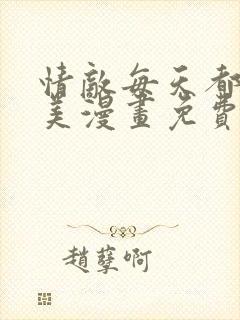 情敵每天都
美漫畫免費
趙孽啊